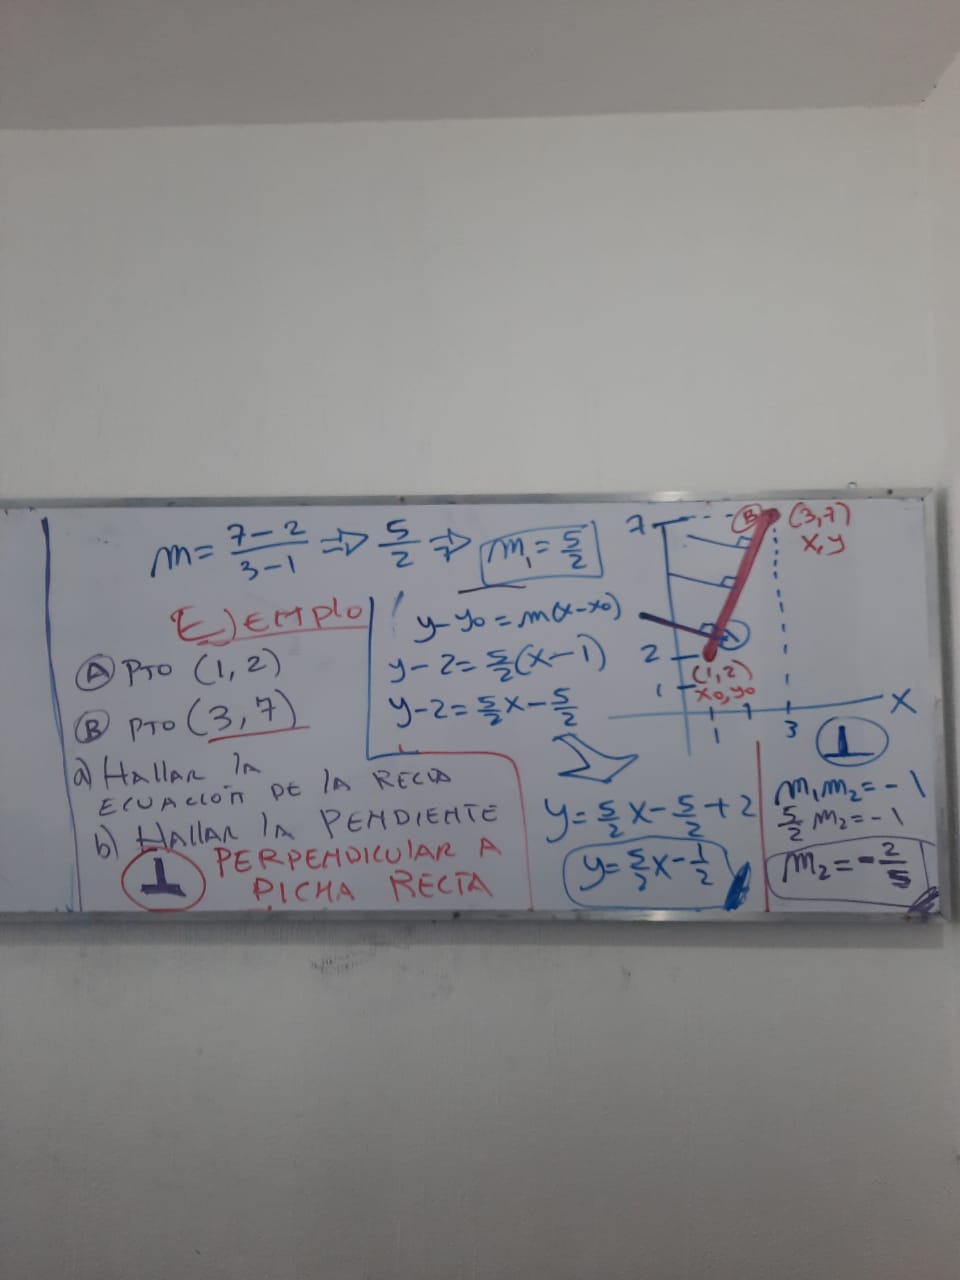 m = 7-2/3-1 ⇒ 5/2 ⇒ m₁ = 5/2
EJEMPLO
Ⓐ PTO (1, 2)
Ⓑ PTO (3, 7)
a) HAllAR lA
ECUACIÓN DE lA RECTA
b) HAllAR lA PENDIENTE
⊥ PERPENDICULAR A
DICHA RECTA
y-y₀ = m(x-x₀)
y-2 = 5/2(x-1)
y-2 = 5/2x-5/2
y = 5/2x-5/2+2
y = 5/2x-1/2
7
B
(3,7)
x,y
A
2
(1,2)
x₀,y₀
1
1
3
X
⊥
m₁m₂ = -1
5/2 m₂ = -1
m₂ = -2/5